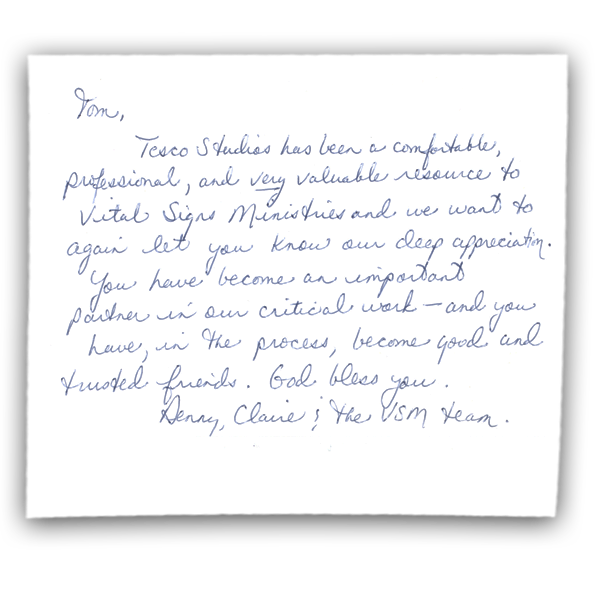 Tom,
Tesco Studios has been a comfortable,
professional, and very valuable resource to
Vital Signs Ministries and we want to
again let you know our deep appreciation.
You have become an important
partner in our critical work — and you
have, in the process, become good and
trusted friends. God bless you.
Denny, Claire & the VSM team.